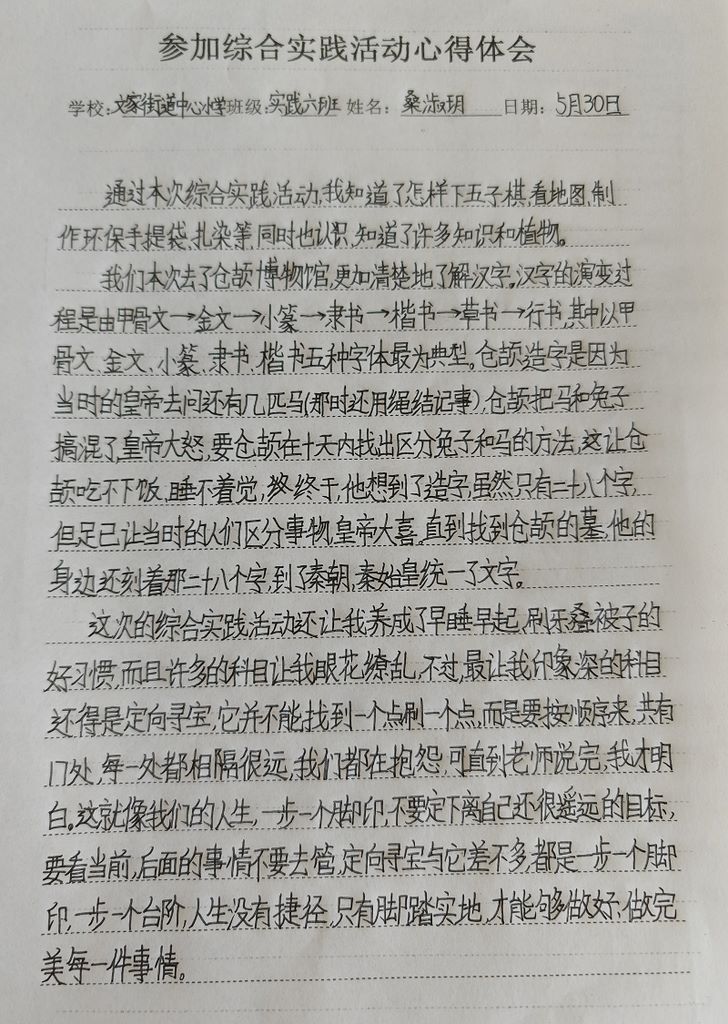 参加综合实践活动心得体会
学校:文家街道中心小学班级:实践六班 姓名: 桑淑玥 日期: 5月30日
通过本次综合实践活动,我知道了怎样下五子棋,看地图,制
作环保手提袋、扎染等,同时也认识,知道了许多知识和植物。
我们本次去了仓颉博物馆,更加清楚地了解汉字。汉字的演变过
程是由甲骨文→金文→小篆→隶书→楷书→草书→行书,其中以甲
骨文、金文、小篆、隶书、楷书五种字体最为典型。仓颉造字是因为
当时的皇帝去问还有几匹马(那时还用绳结记事),仓颉把马和兔子
搞混了,皇帝大怒,要仓颉在十天内找出区分兔子和马的方法,这让仓
颉吃不下饭、睡不着觉,终终于,他想到了造字,虽然只有二十八个字,
但足已让当时的人们区分事物,皇帝大喜。直到找到仓颉的墓,他的
身边还刻着那二十八个字,到了秦朝,秦始皇统一了文字。
这次的综合实践活动还让我养成了早睡早起、刷牙叠被子的
好习惯,而且许多的科目让我眼花缭乱,不过,最让我印象深的科目
还得是定向寻宝,它并不能找到一个点刷一个点,而是要按顺序来,共有
17处,每一处都相隔很远,我们都在抱怨,可直到老师说完,我才明
白。这就像我们的人生,一步一个脚印,不要定下离自己还很遥远的目标,
要看当前,后面的事情不要去管,定向寻宝与它差不多,都是一步一个脚
印,一步一个台阶,人生没有捷径,只有脚踏实地,才能够做好,做完
美每一件事情。